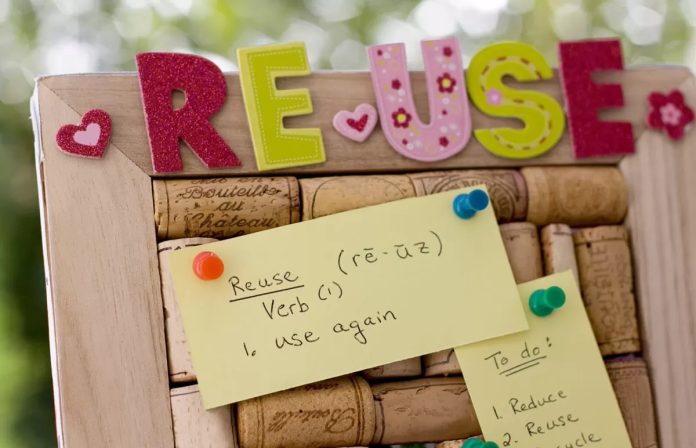 REUSE
Bouteille
au Château
Reuse (rē-ūz)
Verb (1)
1. use again
To do:
1. Reduce
2. Reuse
cycle
Bouteille